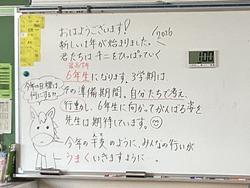 おはようございます!
2026
新しい1年が始まりました。
君たちは チームをひっぱっていく
最高学年
6年生になります。3学期は
その準備期間。自分たちで考え、
行動し、6年生に向かってがんばる姿を
先生は期待しています。
今年の干支のように、みんなの行いが
うまくいきますように…。
今年の目標は
何にする?
100